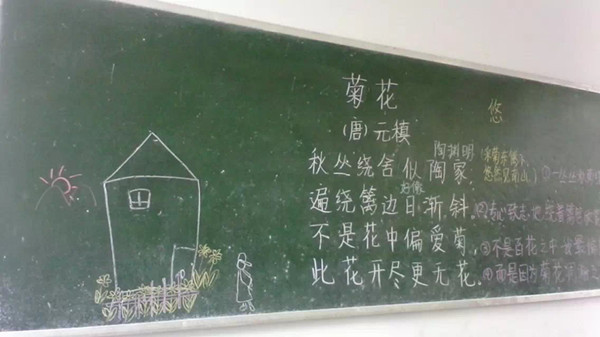 菊花
悠
(唐)元稹
陶渊明
秋丛绕舍似陶家 (采菊东篱下
悠然见南山)
①一丛丛
好像
遍绕篱边日渐斜
不是花中偏爱菊 ③不是百花之中
此花开尽更无花 ④而是因为菊花